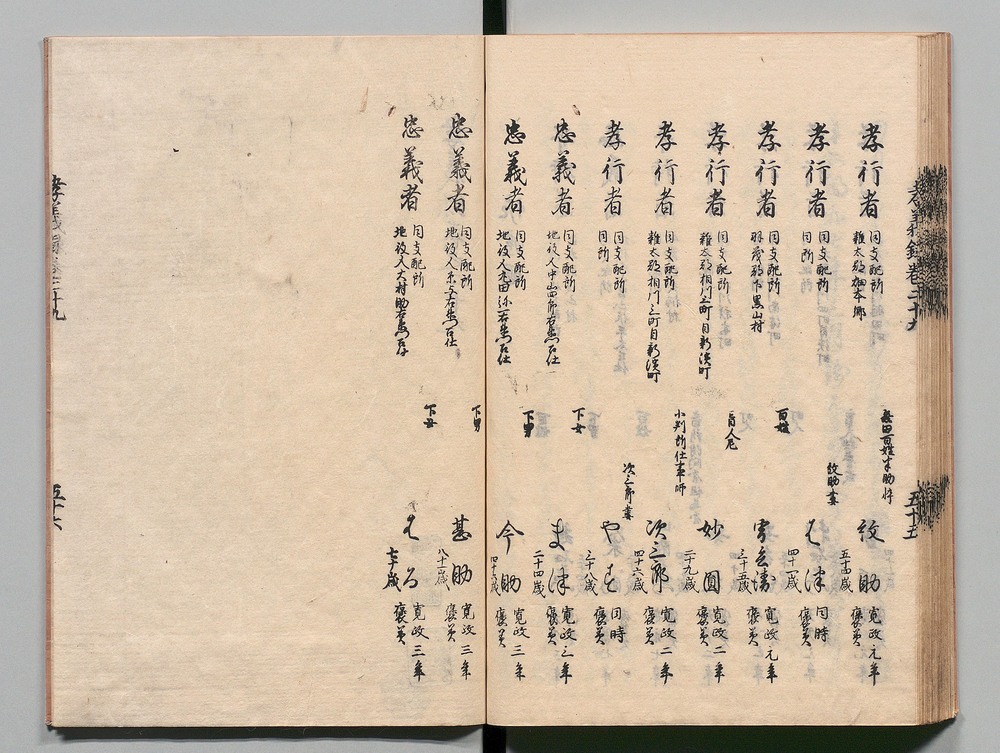 孝義録卷三十九
孝行者
同支配所
雜太郡畑本郷
百姓半助悴
紋助
五十四歳
寛政元年
褒美
孝行者
同支配所
同所
紋助妻
はつ
四十一歳
同時
褒美
孝行者
同支配所
羽茂郡下黒山村
百姓
三十五歳
寛政元年
褒美
孝行者
同支配所
雜太郡相川上町目新濱町
盲人尼
妙圓
二十九歳
寛政二年
褒美
孝行者
同支配所
雜太郡相川上町目新濱町
小判所仕事師
次三郎
四十六歳
寛政二年
褒美
孝行者
同支配所
同所
次三郎妻
やす
三十八歳
同時
褒美
忠義者
同支配所
地役人中山四郎右衛門召仕
下女
まつ
二十四歳
寛政三年
褒美
忠義者
同支配所
地役人 田弥右衛門召仕
下男
今助
四十六歳
寛政三年
褒美
五十五
忠義者
同支配所
地役人 右衛門召仕
下男
甚助
八十一歳
寛政三年
褒美
忠義者
同支配所
地役人大村助右衛門召仕
下女
はる
七十歳
寛政三年
褒美
孝義録卷三十九
五十六